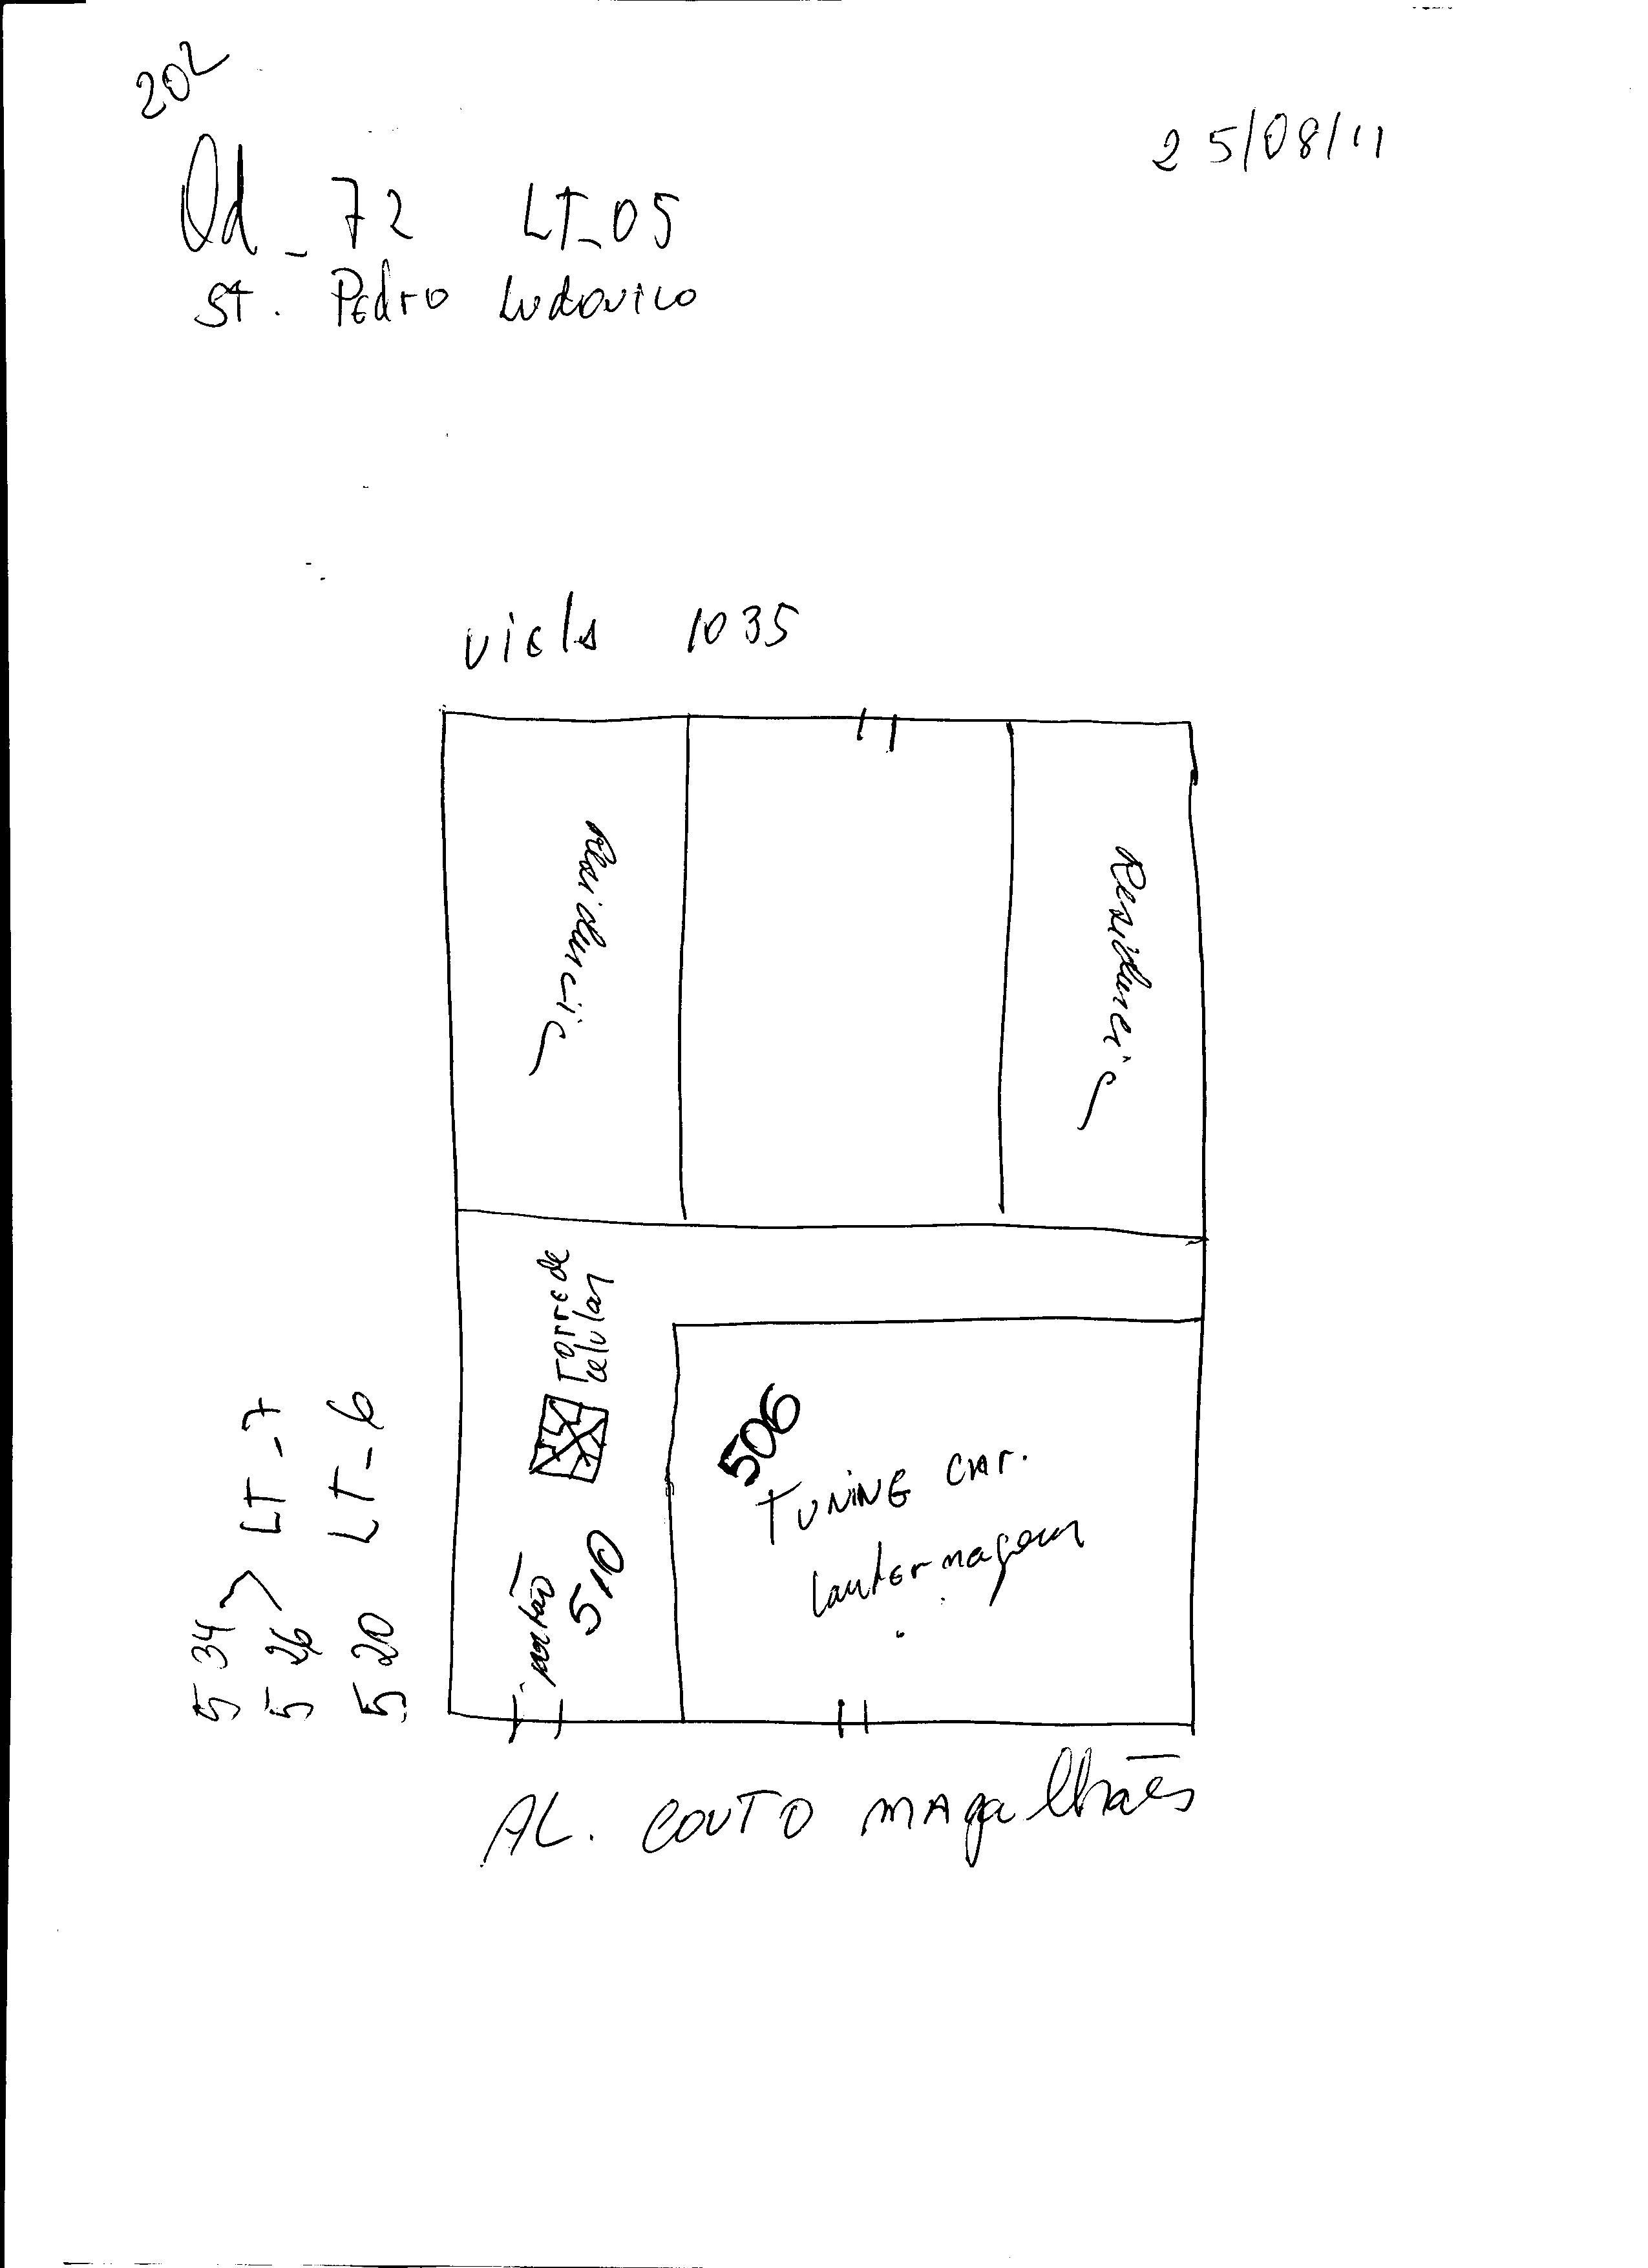 202
25/08/11
Qd - 72 LT-05
ST. Pedro Ludovico
viela 1035
Residencia
Residencia
Torre de
celular
506
Tuning car.
Lanternagem
portão
510
534 > LT-7
526
520 LT-6
AL. COUTO MAgalhães